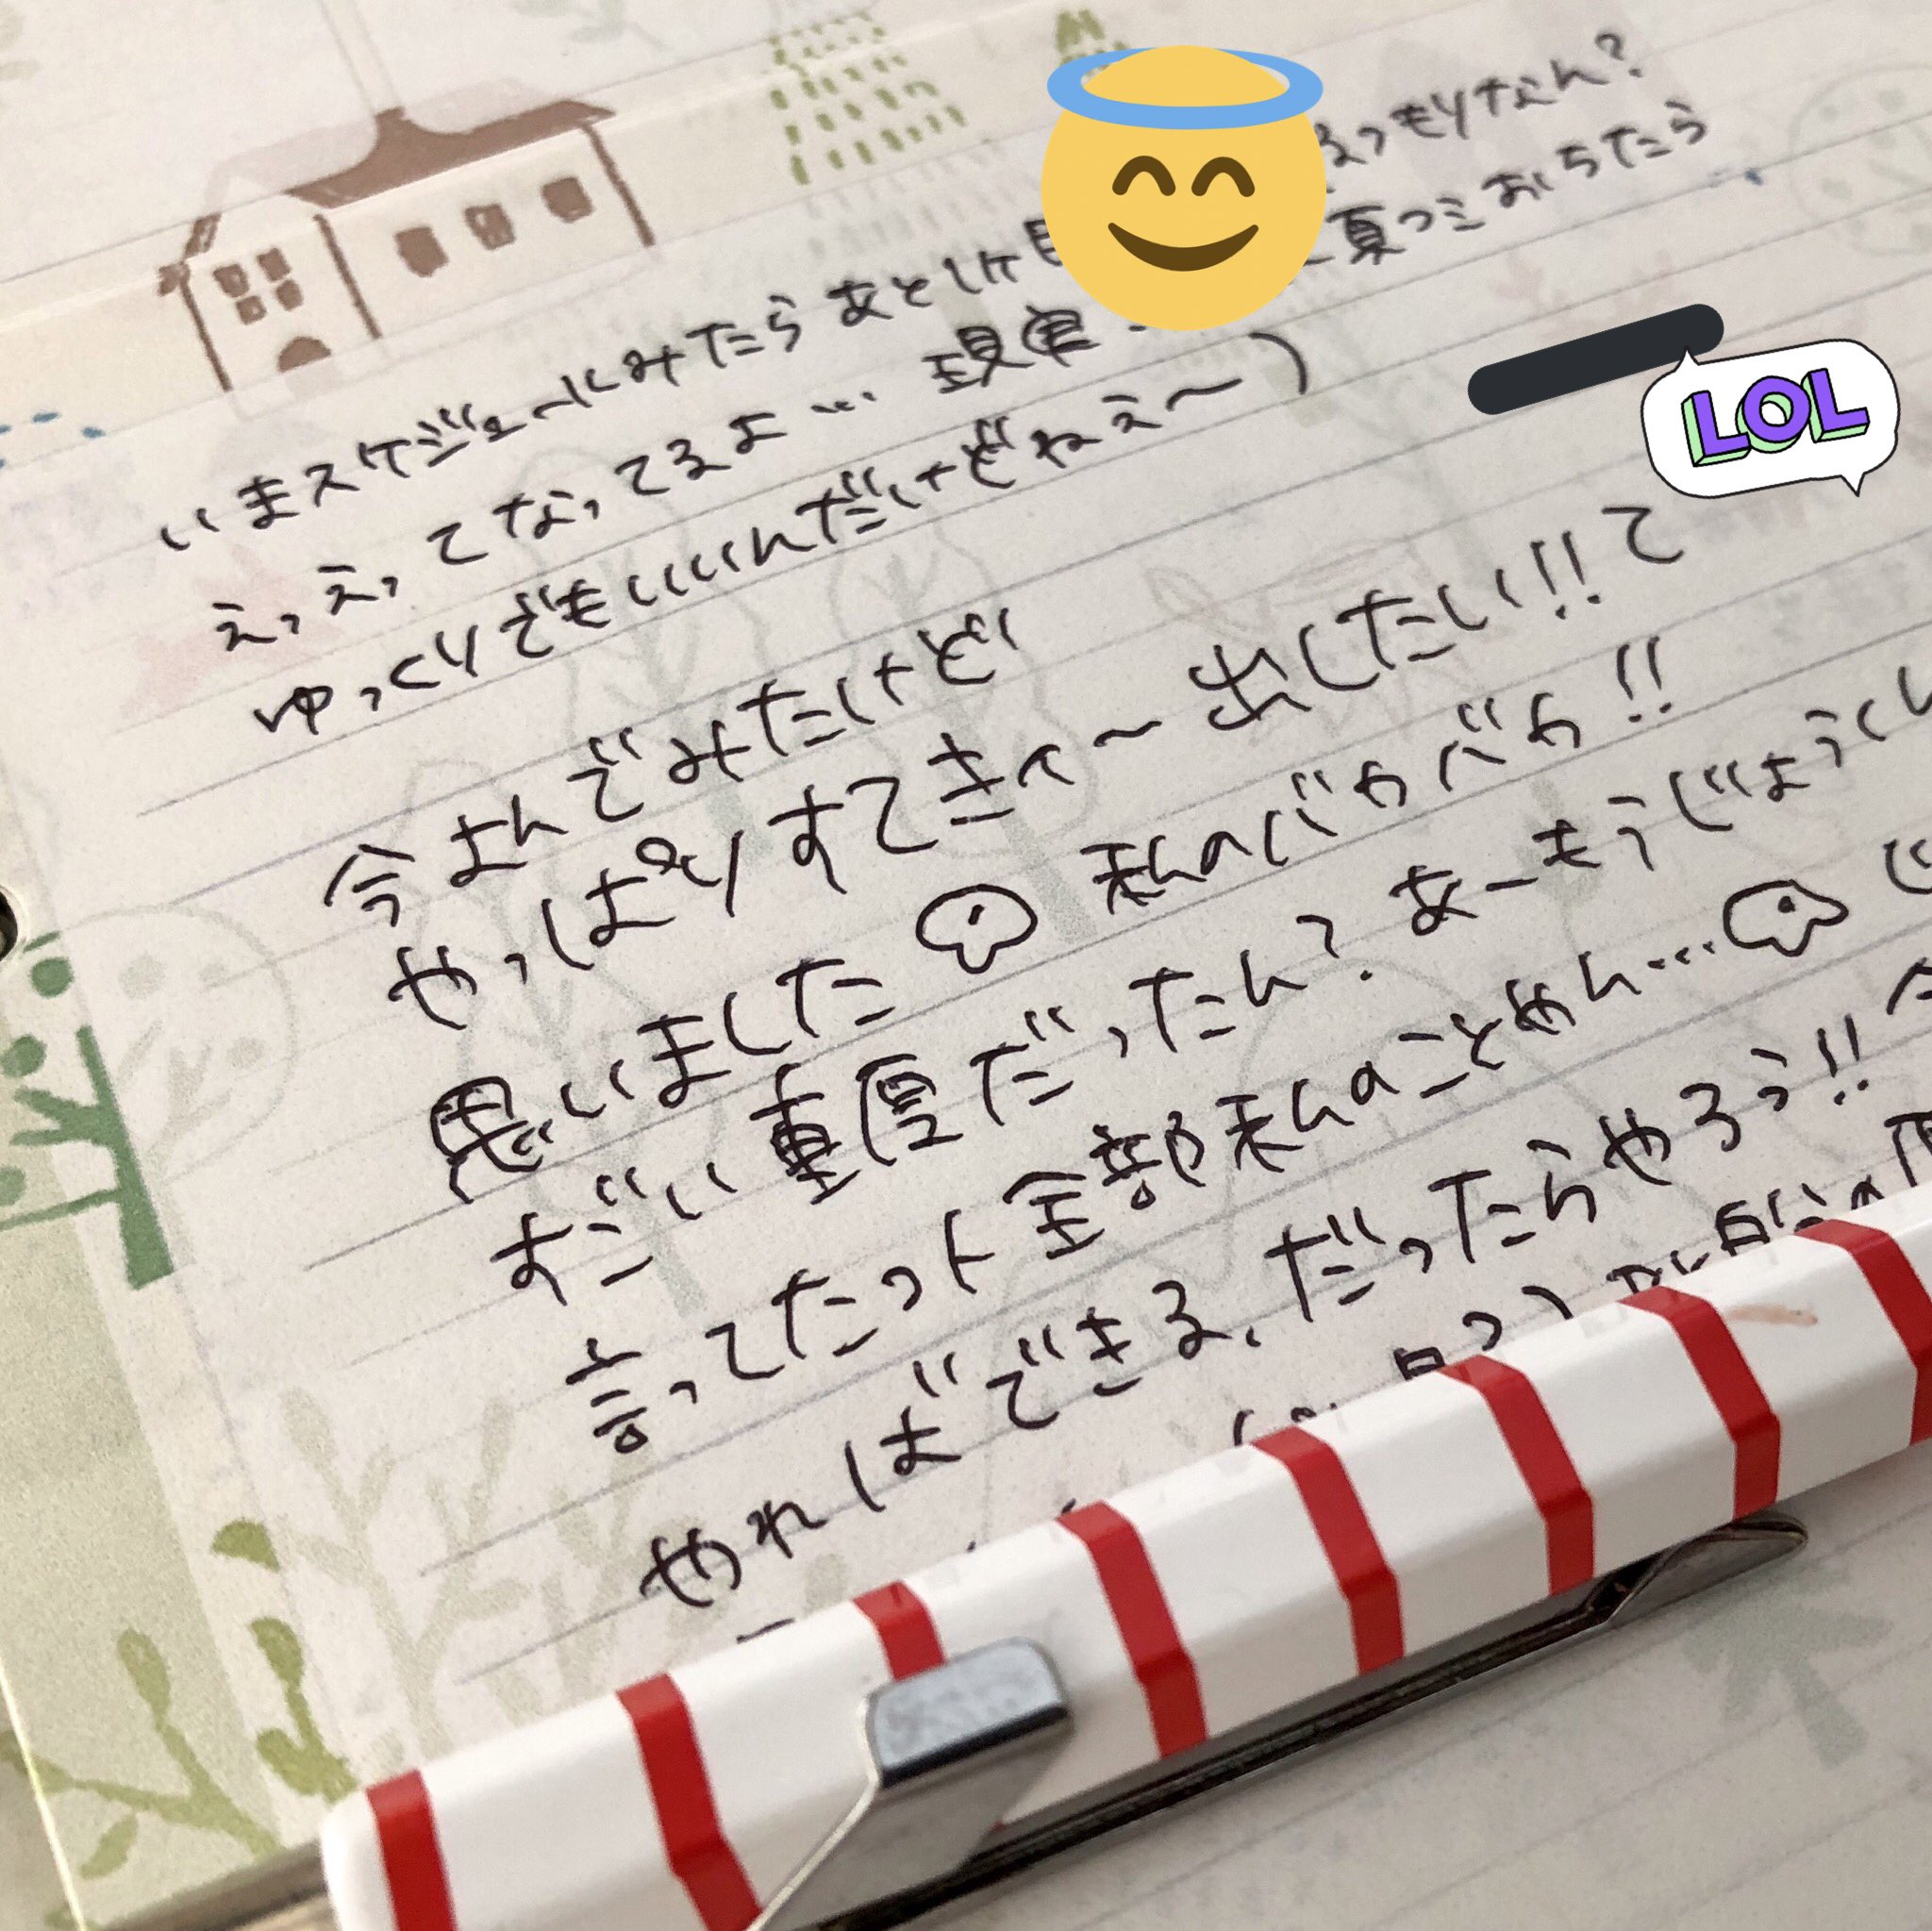 いまスケジュールみたらあと1ヶ月 るつもりなん?
えっえってなってるよ… 現実 夏コミおちたら
ゆっくりでもいいんだけどねぇ〜)
LOL
今よんでみたけど
やっぱりすてきヘ〜出したい!!て
思いました 私のバカバカ!!
すごい重厚だったん? あーもうじょうくし
言ってたっト全部私のことやん…
やればできる、だったらやろう!! 今